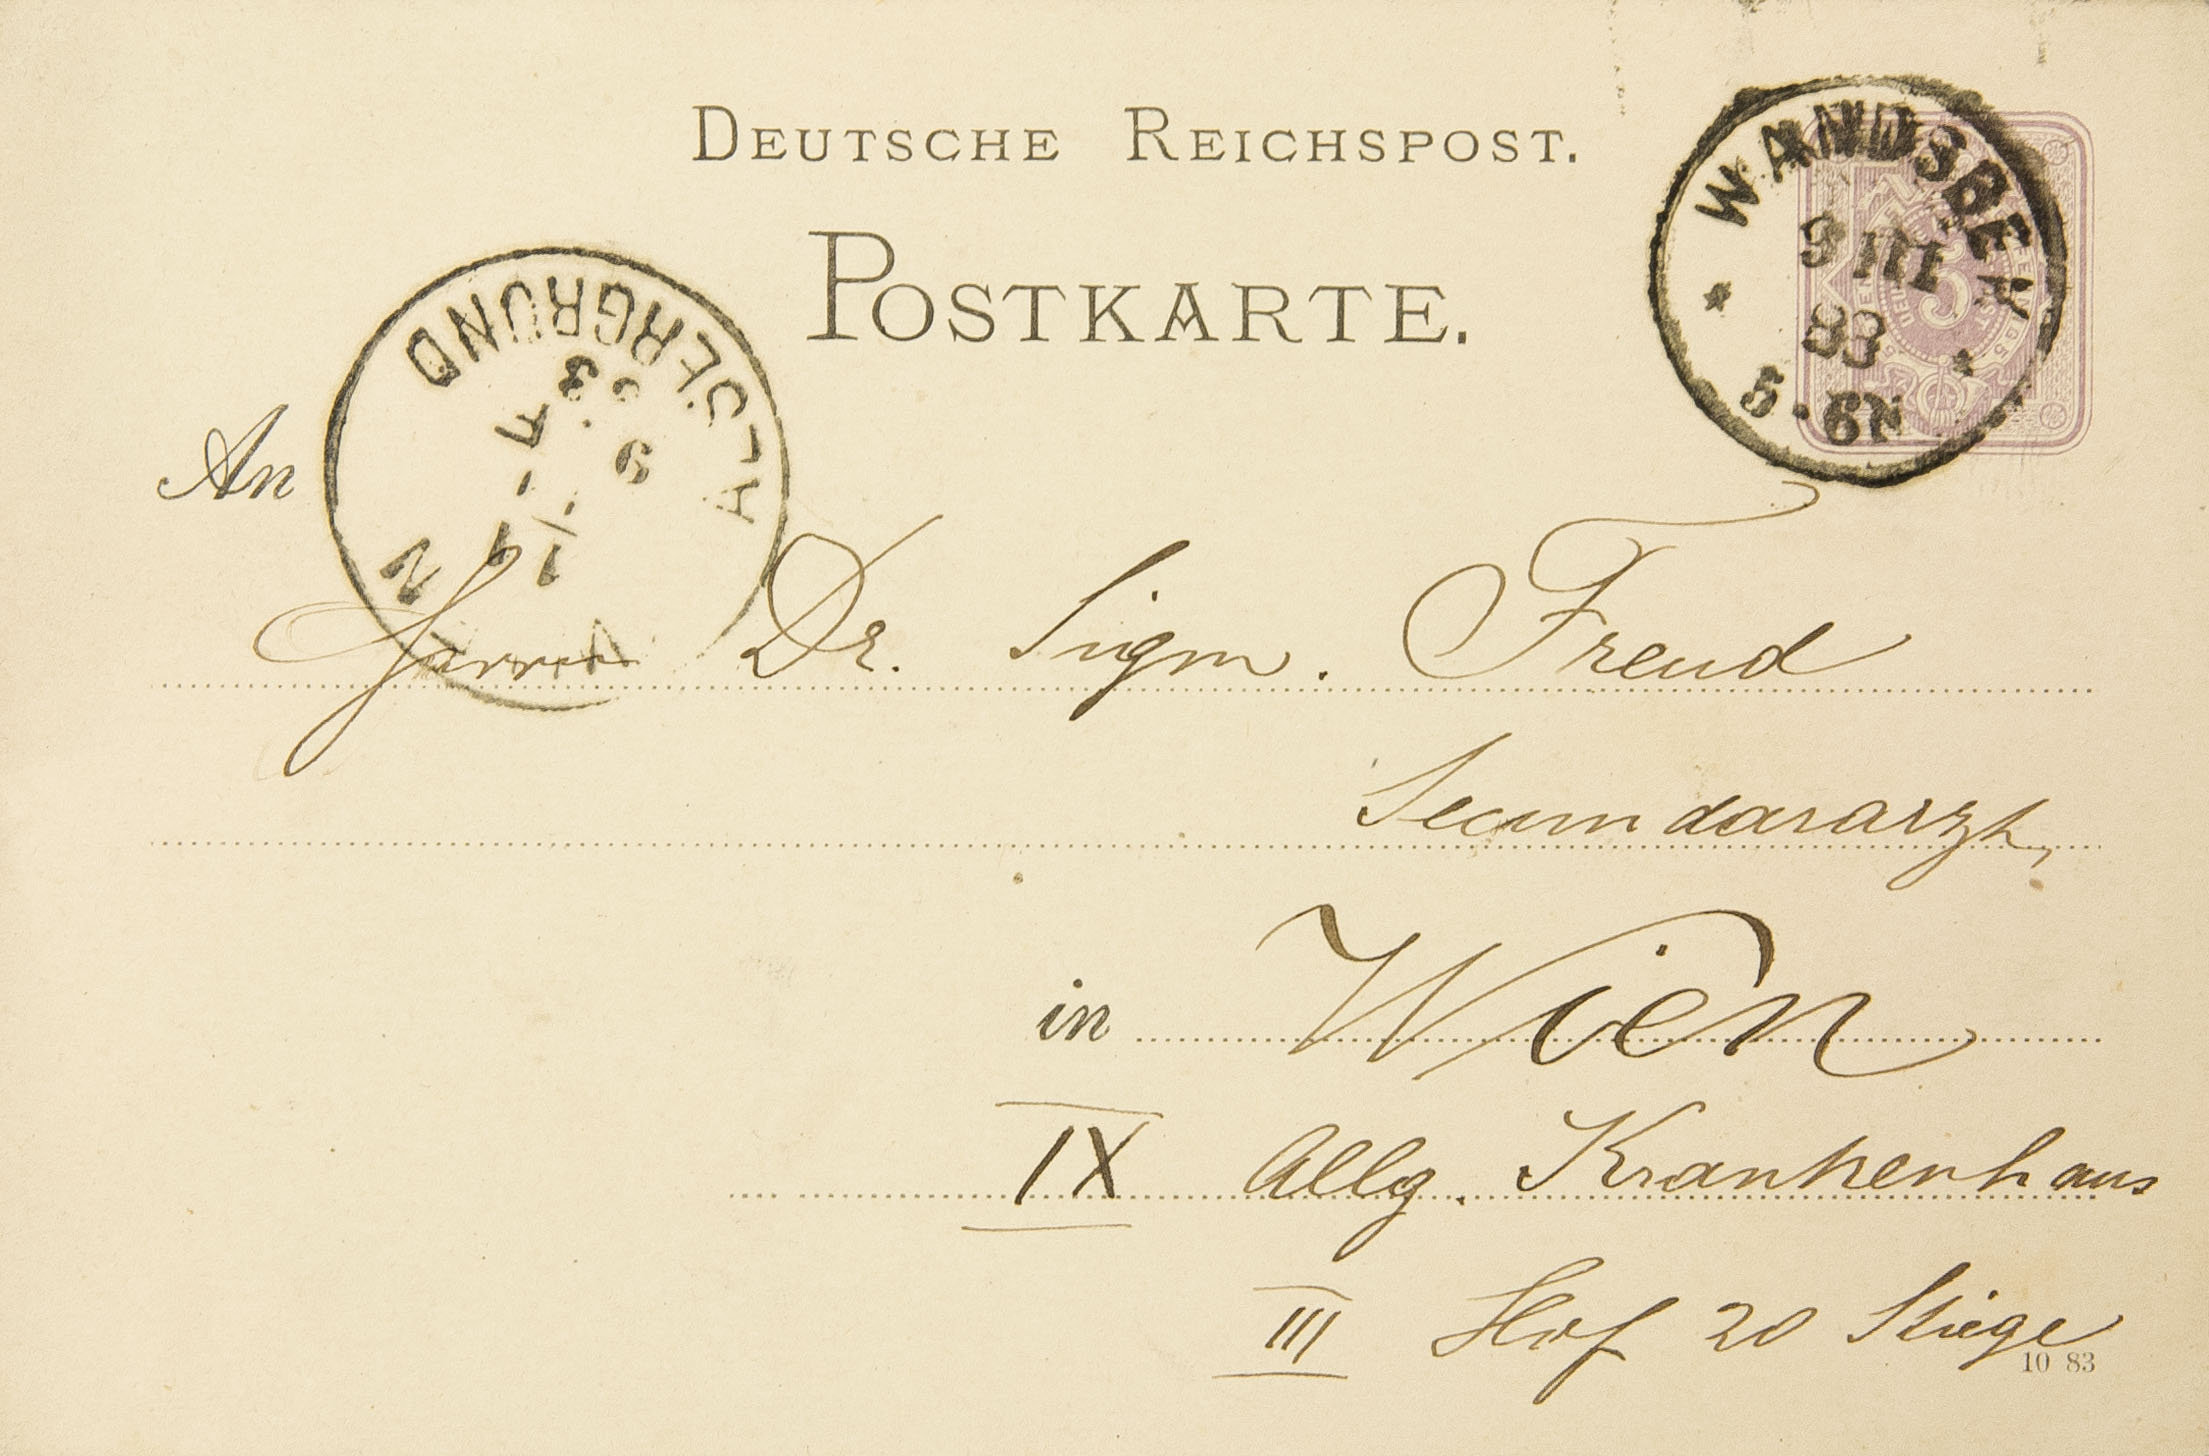 DEUTSCHE REICHSPOST.
POSTKARTE.
WANDSBEK
9 III
83
5-6N
ALSERGRUND
An
Herrn Dr. Sigm. Freud
Secundararzt,
in Wien
IX Allg. Krankenhaus
III Hof 20 Stiege
10 83